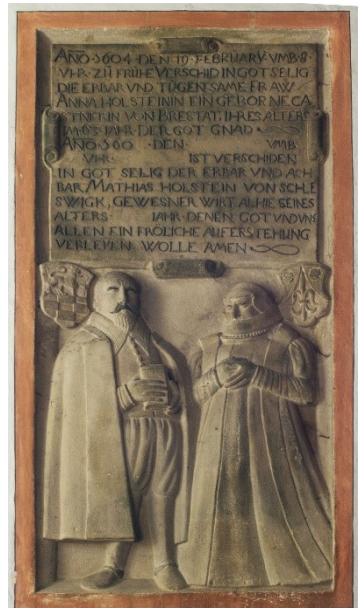 AÑO·1604·DEN·19·FEBRUARY·VMB·8·
VHR·ZŮ FRŮHE VERSCHID IN GOT SELIG
DIE ERBAR VND TUGENTSAME FRAW
ANNA HOLSTEININ EIN GEBORNE CA
STNERIN VON BRESTAT, IHRES ALTERS
IM 63 JAHR·DER GOT GNAD
AÑO·160 ·DEN· VMB·
VHR· IST VERSCHIDEN
IN GOT SELIG DER ERBAR VND ACH
BAR, MATHIAS HOLSTEIN VON SCHLE
SWIGK, GEWESNER WIRT ALHIE SEINES
ALTERS· JAHR·DENEN GOT VND VNS
ALLEN EIN FRÖLICHE AUFERSTEHUNG
VERLEYEN WOLLE AMEN